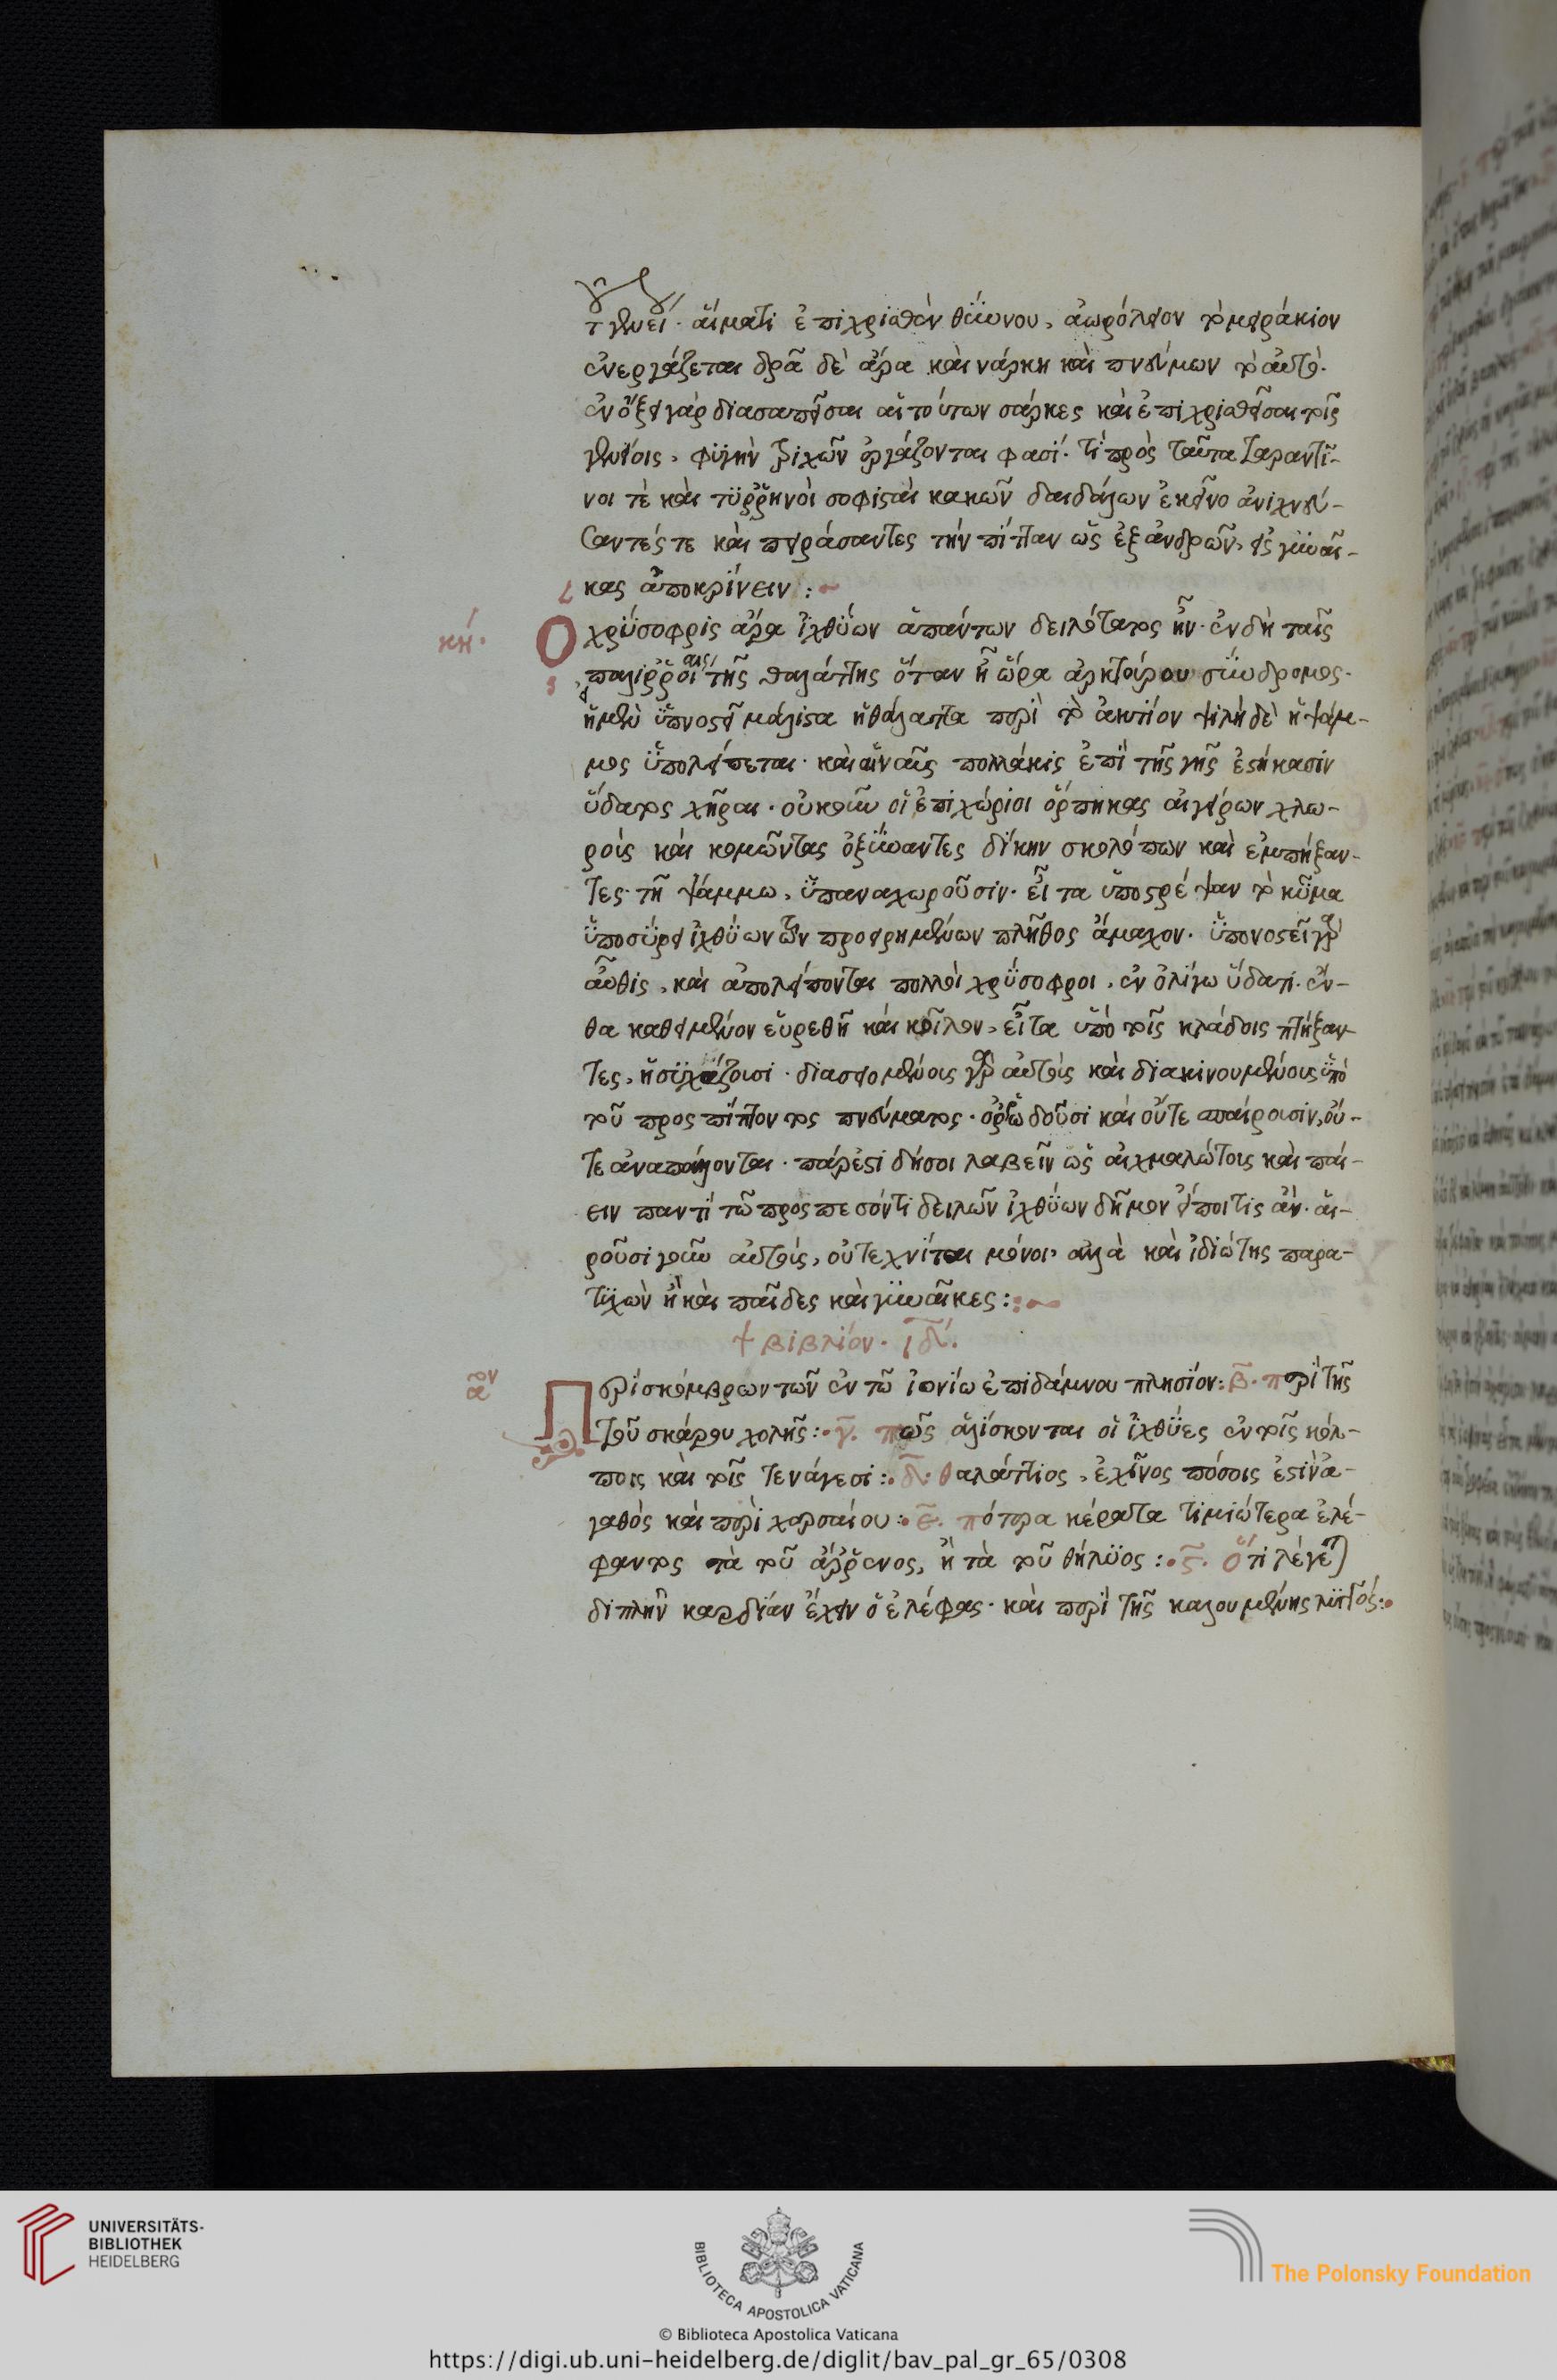 τ γένει· αἵματι ἐπιχρισθὲν θύννου, ἀωρόλειον τὸ μειράκιον
ἐνεργάζεται δρᾶ δὲ ἄρα καὶ νάρκη καὶ πνεύμων τὸ αὐτό·
ἐν ὄξει γὰρ διασαπεῖσαι αἱ τούτων σάρκες καὶ ἐπιχρισθεῖσαι τοῖς
γενείοις, φυγὴν τριχῶν ἐργάζονται φασί· τί πρὸς ταῦτα ταραντῖ-
νοι τὲ καὶ τυῤῥηνοὶ σοφισταὶ κακῶν δαιδάλων ἐκεῖνο ἀνιχνεύ-
σαντές τε καὶ πειράσαντες τὴν πίτταν ὡς ἐξ ἀνδρῶν, εἰς γυναῖ-
κας ἀποκρίνειν :~
κή·
Ὁ χρύσοφρις ἄρα ἰχθύων ἁπάντων δειλότατος ἦν· ἐν δὴ ταῖς
παλιῤῥοίαις τῆς θαλάττης ὅταν ἦ ὥρα ἀρκτούρου σύνδρομος·
ἡ μὲν ὑπονοστεῖ μάλιστα ἡ θάλαττα περὶ τὸ ἀκτίον ψιλὴ δὲ ἡ ψάμ-
μος ὑπολείπεται· καὶ αἱ ναῦς πολλάκις ἐπὶ τῆς γῆς ἑστήκασιν
ὕδατος χῆραι· οὐκοῦν οἱ ἐπιχώριοι ὅρπηκας αἰγείρων χλω-
ροὺς καὶ κομῶντας ὀξύναντες δίκην σκολόπων καὶ ἐμπήξαν-
τες· τῆ ψάμμω, ὑπαναχωροῦσιν· εἶτα ὑποστρέψαν τὸ κῦμα
ὑποσύρει ἰχθύων τῶν προειρημένων πλῆθος ἄμαχον· ὑπονοστεῖ γὰρ
αὖθις, καὶ ἀπολείπονται πολλοὶ χρύσοφροι, ἐν ὀλίγω ὕδατι· ἔν-
θα καθειμένον εὑρεθῆ καὶ κοῖλον, εἶτα ὑπὸ τοῖς κλάδοις πτήξαν-
τες, ἡσυχάζουσι· διασειομένους γὰρ αὐτοὺς καὶ διακινουμένους ὑπὸ
τοῦ προσπίπτοντος πνεύματος· ὀῤῥωδοῦσι καὶ οὔτε σπαίρουσιν, οὔ-
τε ἀναπάλονται· πάρεστι δήσοι λαβεῖν ὡς αἰχμαλώτους καὶ παί-
ειν παντὶ τῶ προσπεσόντι δειλῶν ἰχθύων δῆμον εἴποι τις ἄν· αἱ-
ροῦσι γοῦν αὐτοὺς, οὐ τεχνίται μόνοι, ἀλλὰ καὶ ἰδιώτης παρα-
τυχὼν ἢ καὶ παῖδες καὶ γυναῖκες :~
+ βιβλίον· ιδ΄.
α ον
Περὶ σκόμβρων τῶν ἐν τῶ ἰονίω ἐπιδάμνου πλησίον: β· περὶ τῆς
τοῦ σκάρου χολῆς: γ. πῶς ἁλίσκονται οἱ ἰχθύες ἐν τοῖς κόλ-
ποις καὶ τοῖς τενάγεσι: δ: θαλάττιος, ἐχῖνος πόσοις ἐστὶν ἀ-
γαθὸς καὶ περὶ χερσαίου: ε. πότερα κέρατα τιμιώτερα ἐλέ-
φαντος τὰ τοῦ ἄῤῥενος, ἢ τὰ τοῦ θήλυος : ς. ὅτι λέγεται
διπλῆν καρδίαν ἔχειν ὁ ἐλέφας· καὶ περὶ τῆς καλουμένης λυττός:
UNIVERSITÄTS-
BIBLIOTHEK
HEIDELBERG
BIBLIOTECA APOSTOLICA VATICANA
The Polonsky Foundation
© Biblioteca Apostolica Vaticana
https://digi.ub.uni-heidelberg.de/diglit/bav_pal_gr_65/0308